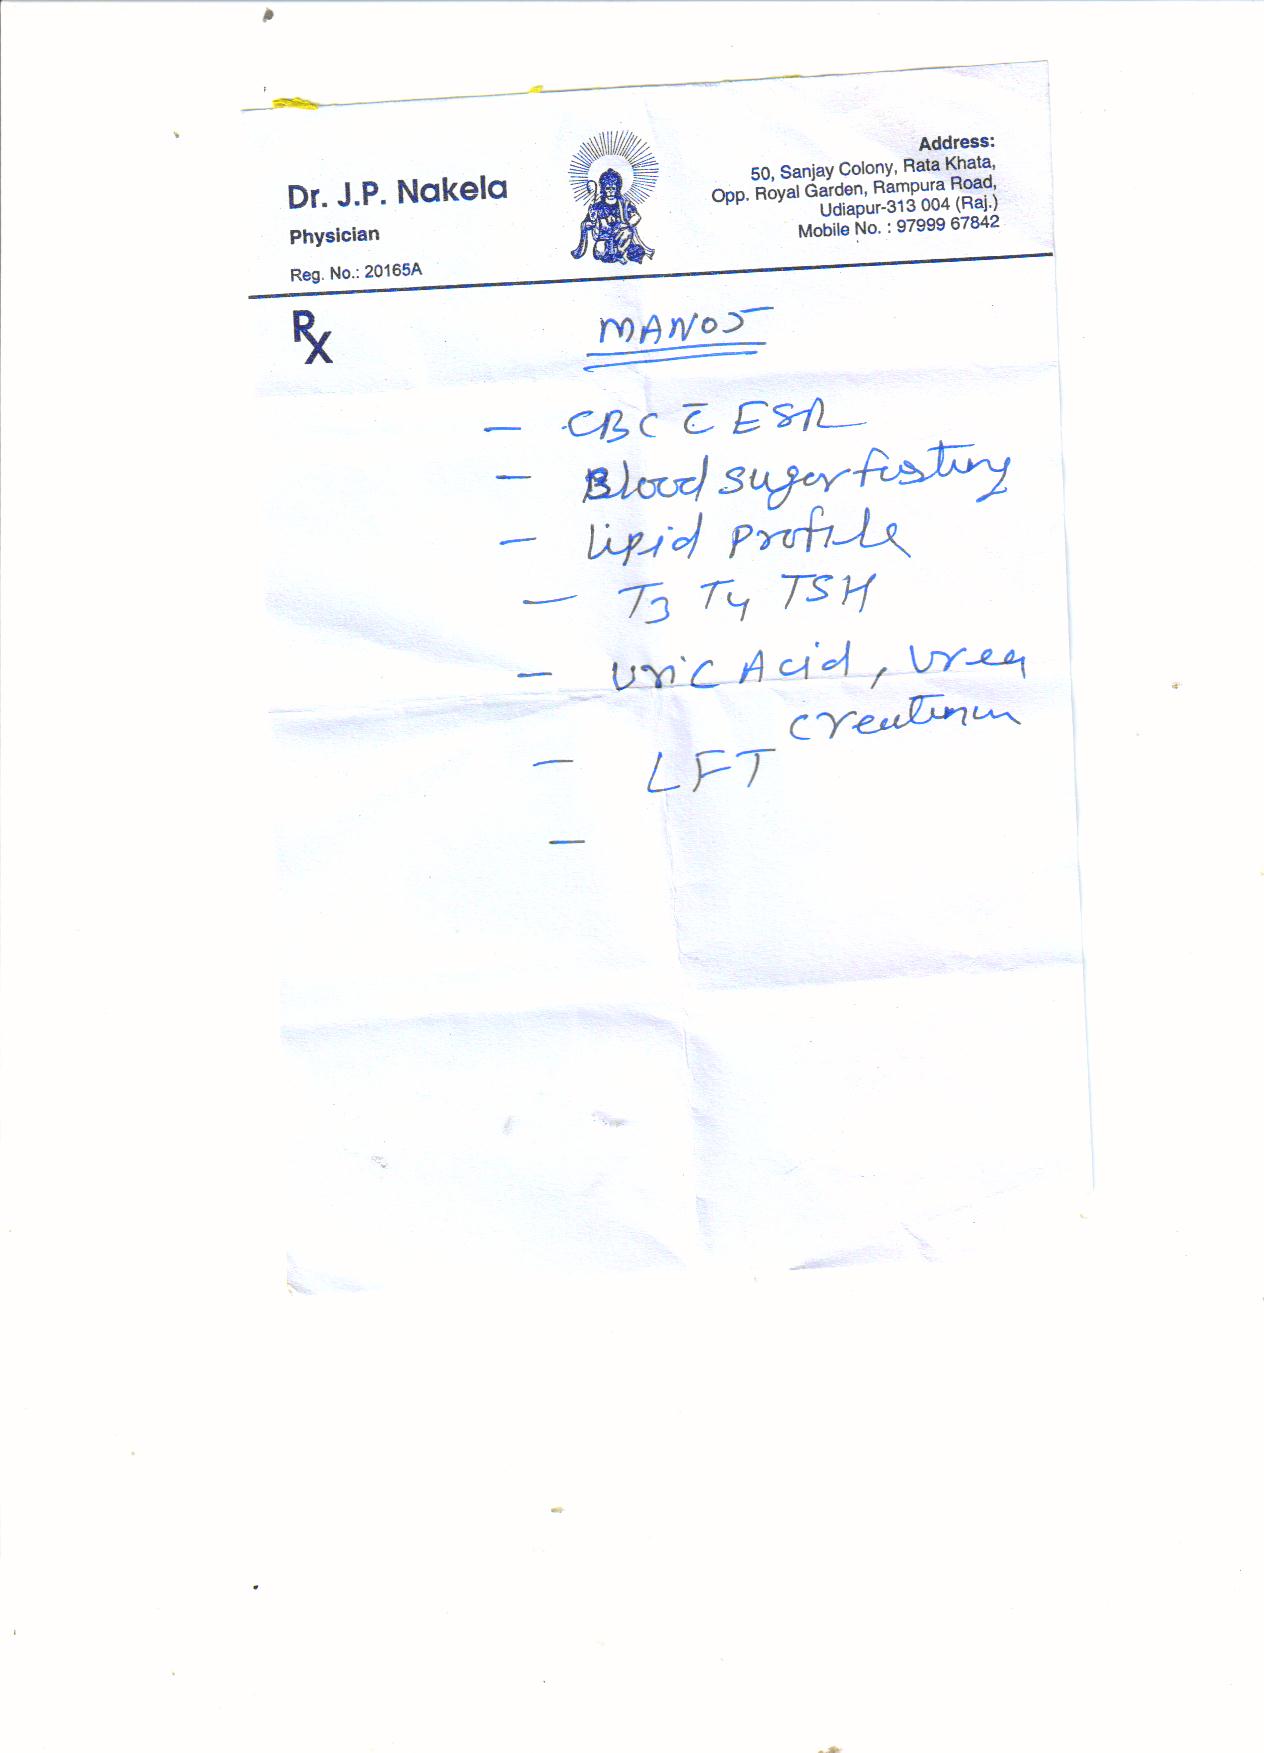 Dr. J.P. Nakela
Physician
Reg. No.: 20165A
Address:
50, Sanjay Colony, Rata Khata,
Opp. Royal Garden, Rampura Road,
Udiapur-313 004 (Raj.)
Mobile No. : 97999 67842
Rx
MANOJ
- CBC c̄ ESR
- Blood sugar fasting
- Lipid profile
- T3 T4 TSH
- Uric Acid, Urea
creatinin
- LFT
-